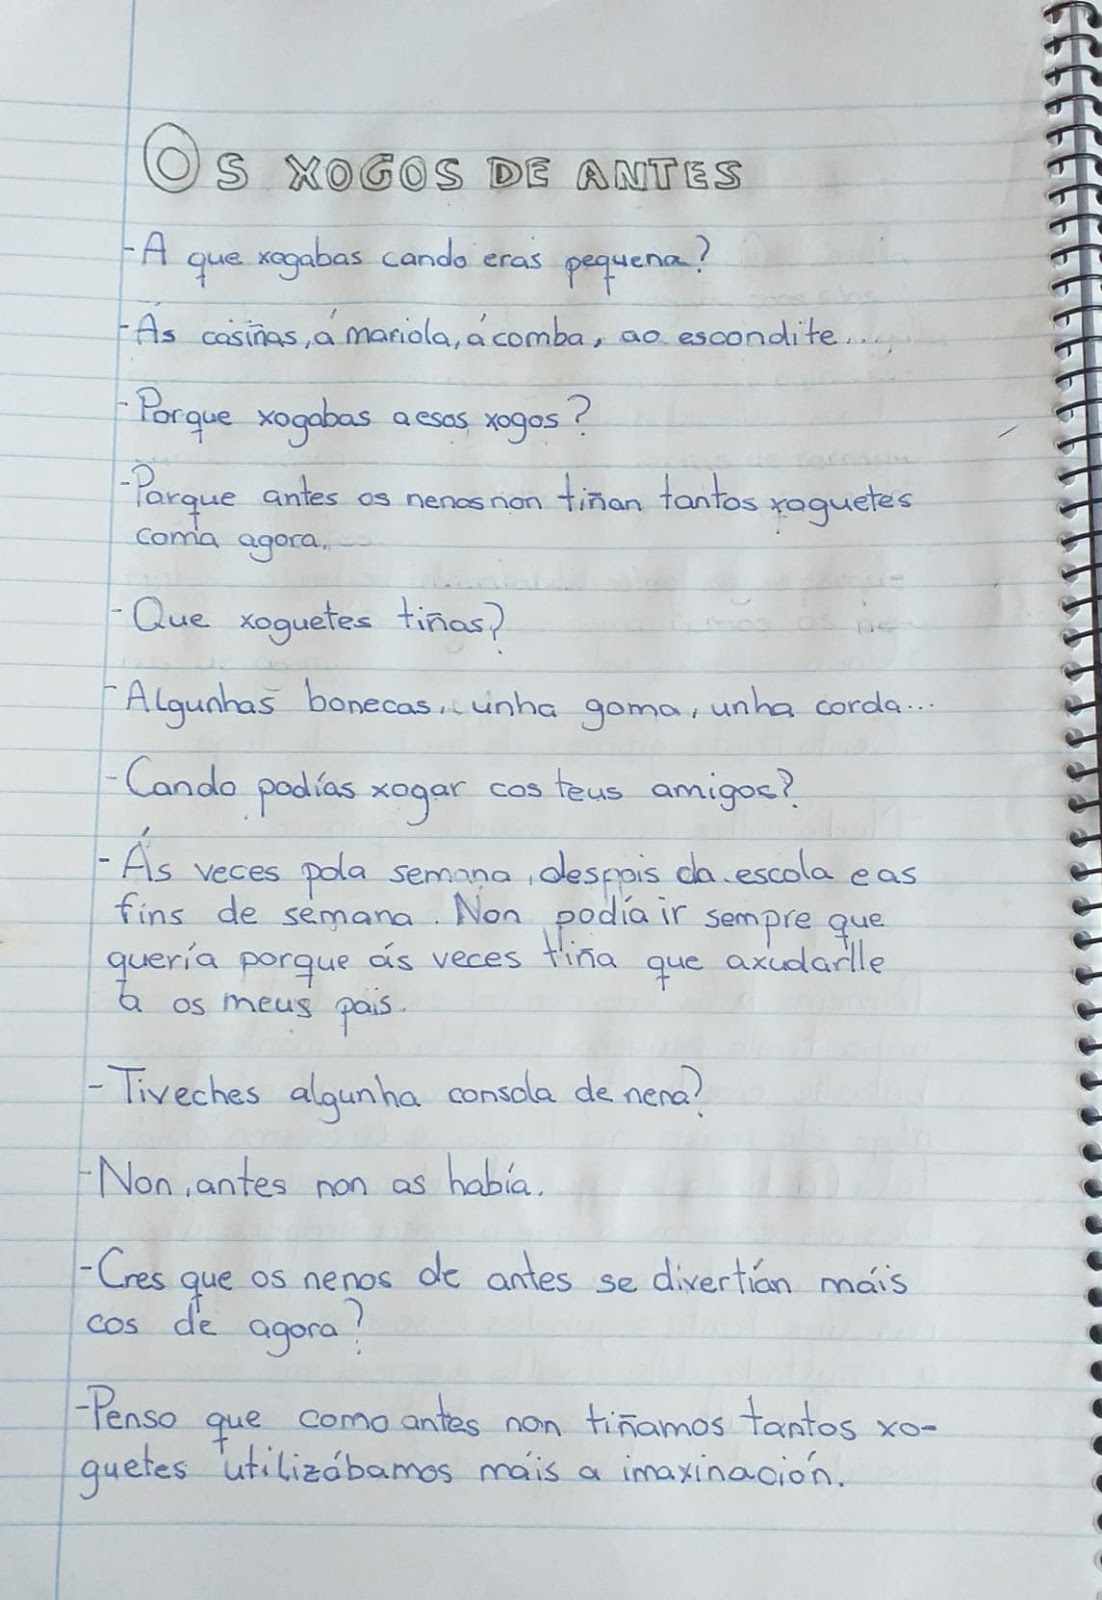 OS XOGOS DE ANTES
-A que xogabas cando eras pequena?
-Ás casiñas, á mariola, á comba, ao escondite...
-Porque xogabas a esos xogos?
-Porque antes os nenos non tiñan tantos xoguetes
coma agora.
-Que xoguetes tiñas?
-Algunhas bonecas, unha goma, unha corda...
-Cando podías xogar cos teus amigos?
-Ás veces pola semana, despois da escola e as
fins de semana. Non podía ir sempre que
quería porque ás veces tiña que axudarlle
a os meus pais.
-Tiveches algunha consola de nena?
-Non, antes non as había.
-Cres que os nenos de antes se divertían máis
cos de agora?
-Penso que como antes non tiñamos tantos xo-
guetes utilizábamos máis a imaxinación.